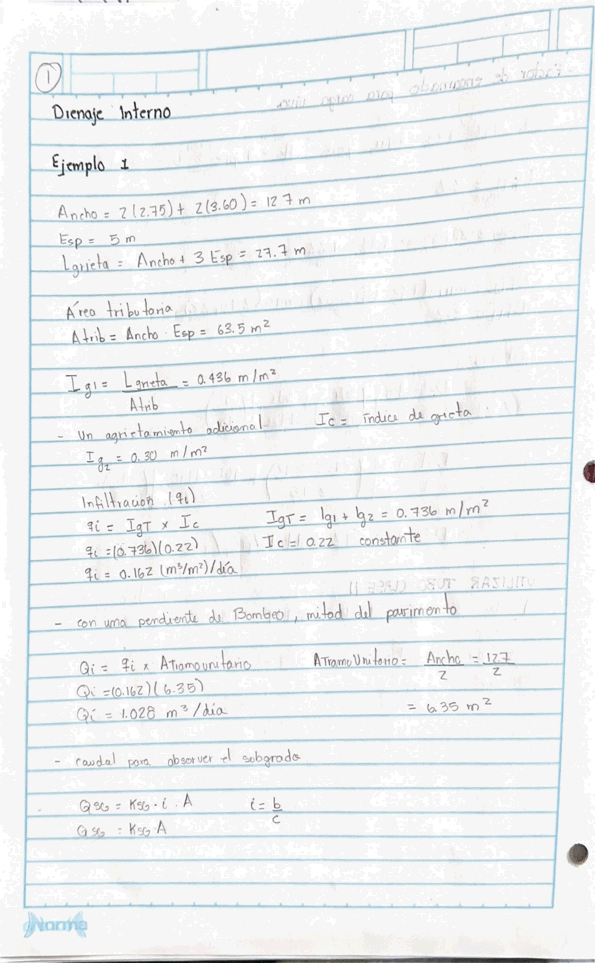 1
Drenaje Interno
Ejemplo 1
Ancho = 2(2.75) + 2(3.60) = 12.7 m
Esp = 5 m
Lgrieta = Ancho + 3 Esp = 27.7 m
Área tributaria
Atrib = Ancho Esp = 63.5 m²
Ig1 = Lgrieta / Atrib = 0.436 m/m²
- Un agrietamiento adicional Ic = índice de grieta
Ig2 = 0.30 m/m²
Infiltración (qi)
qi = IgT x Ic IgT = Ig1 + Ig2 = 0.736 m/m²
qi = (0.736)(0.22) Ic = 0.22 constante
qi = 0.162 (m³/m²)/día
- con una pendiente de Bombeo, mitad del pavimento
Qi = qi x ATramounitario ATramoUnitario = Ancho / 2 = 12.7 / 2
Qi = (0.162)(6.35)
Qi = 1.028 m³/día = 6.35 m²
- caudal para absorver el subgrado
QSG = KSG · i · A i = b / c
QSG = KSG A
Norma